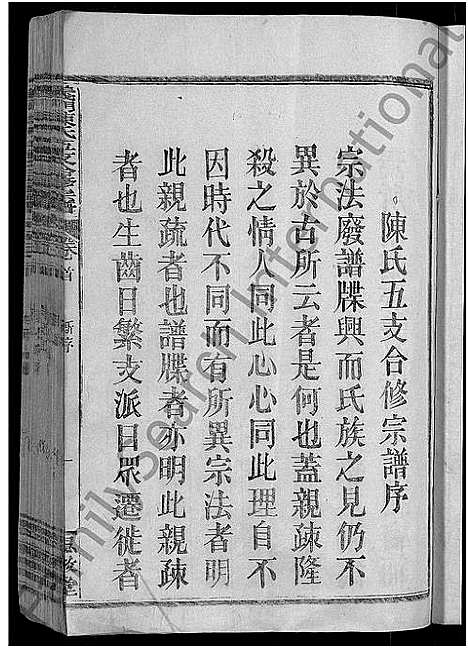 陳氏五支合修宗譜序
宗法廢譜牒興而氏族之見仍不
異於古所云者是何也蓋親疎隆
殺之情人同此心心同此理自不
因時代不同而有所異宗法者明
此親疏者也譜牒者亦明此親疎
者也生齒日繁支派日眾遷徙者
卷首
新序
一
Family Search International